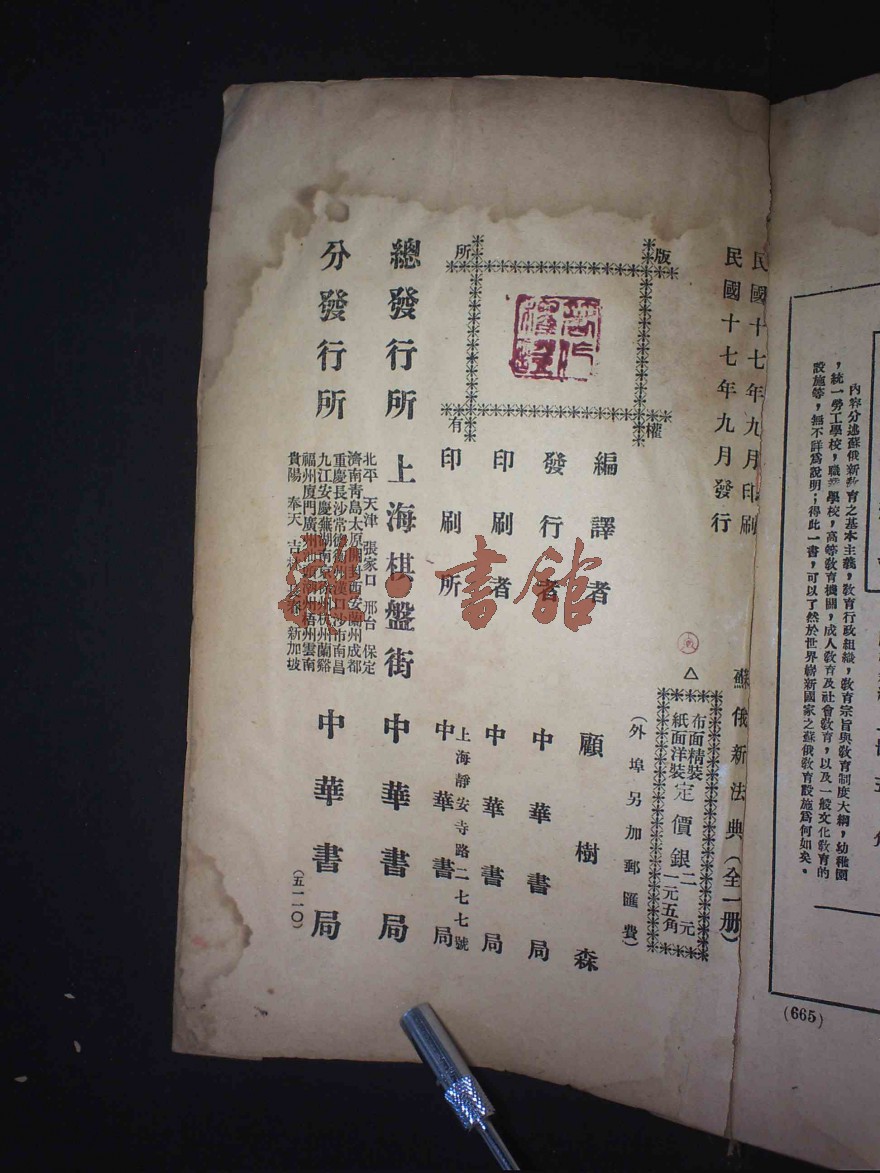 內容分述蘇俄新教育之基本主義，教育行政組織，教育宗旨與教育制度大綱，幼稚園
，統一勞工學校，職業學校，高等教育機關，成人教育及社會教育，以及一般文化教育的
設施等，無不詳爲說明；得此一書，可以了然於世界嶄新國家之蘇俄教育設施爲何如矣。
(665)
民國十七年九月印刷
民國十七年九月發行
蘇俄新法典（全一册）
△
布面精裝 定價銀二元
紙面洋裝 定價銀一元五角
（外埠另加郵匯費）
版權所有
編譯者 顧樹森
發行者 中華書局
印刷者 中華書局
印刷所 上海靜安寺路二七七號
中華書局
總發行所 上海棋盤街 中華書局
分發行所
北平 天津 張家口 邢台 保定
濟南青島太原開封西安蘭州成都
重慶長沙常德衡州漢口沙市南昌
九江安慶蕪湖南京徐州杭州蘭谿
福州廈門廣州汕頭潮州梧州雲南
貴陽 奉天 吉林 長春 新加坡
中華書局
（五一一〇）
書館